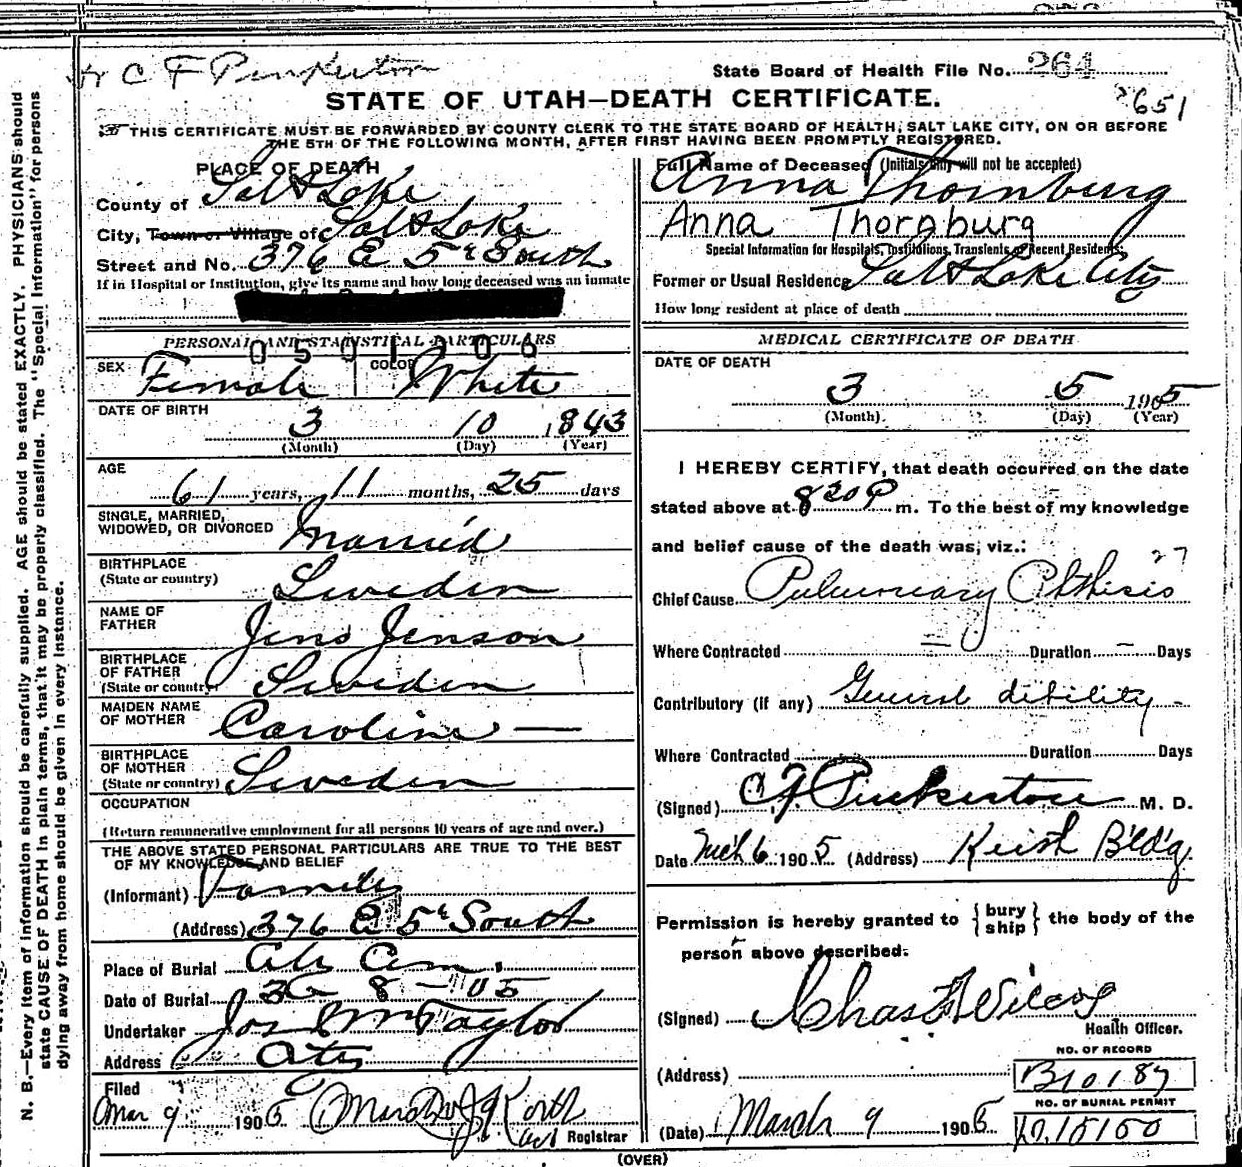 Dr C F Pinkerton
State Board of Health File No. 264
2651
STATE OF UTAH—DEATH CERTIFICATE.
THIS CERTIFICATE MUST BE FORWARDED BY COUNTY CLERK TO THE STATE BOARD OF HEALTH, SALT LAKE CITY, ON OR BEFORE
THE 5TH OF THE FOLLOWING MONTH, AFTER FIRST HAVING BEEN PROMPTLY REGISTERED.
PLACE OF DEATH
County of Salt Lake
City, Town or Village of Salt Lake
Street and No. 376 E 5th South
If in Hospital or Institution, give its name and how long deceased was an inmate
Full Name of Deceased (Initials only will not be accepted)
Anna Thornburg
Anna Thornburg
Special Information for Hospitals, Institutions, Transients or Recent Residents:
Former or Usual Residence Salt Lake City
How long resident at place of death
PERSONAL AND STATISTICAL PARTICULARS
0501206
SEX Female COLOR White
DATE OF BIRTH
3 10 1843
(Month) (Day) (Year)
AGE
61 years, 11 months, 25 days
SINGLE, MARRIED,
WIDOWED, OR DIVORCED Married
BIRTHPLACE
(State or country) Sweden
NAME OF
FATHER Jens Jenson
BIRTHPLACE
OF FATHER
(State or country) Sweden
MAIDEN NAME
OF MOTHER Caroline —
BIRTHPLACE
OF MOTHER
(State or country) Sweden
OCCUPATION
(Return remunerative employment for all persons 10 years of age and over.)
THE ABOVE STATED PERSONAL PARTICULARS ARE TRUE TO THE BEST
OF MY KNOWLEDGE AND BELIEF
(Informant) Family
(Address) 376 E 5th South
Place of Burial City Cem.
Date of Burial 3 8 - 05
Undertaker Jos E Taylor
Address City
Filed
Mar 9 1905
Registrar
MEDICAL CERTIFICATE OF DEATH
DATE OF DEATH
3 5 1905
(Month) (Day) (Year)
I HEREBY CERTIFY, that death occurred on the date
stated above at 8 20 P m. To the best of my knowledge
and belief cause of the death was, viz.:
27
Chief Cause Pulmonary Phthisis
Where Contracted — Duration — Days
Contributory (if any) General dibility
Where Contracted Duration Days
(Signed) C. F. Pinkerton M. D.
Date Mch 6 1905 (Address) Keith Bldg
Permission is hereby granted to {bury ship} the body of the
person above described.
(Signed) Chas F Wilcox
Health Officer.
NO. OF RECORD
(Address) B10187
NO. OF BURIAL PERMIT
(Date) March 9 1905 10.15150
(OVER)
N. B.—Every item of information should be carefully supplied. AGE should be stated EXACTLY. PHYSICIANS should
state CAUSE OF DEATH in plain terms, that it may be properly classified. The "Special Information" for persons
dying away from home should be given in every instance.